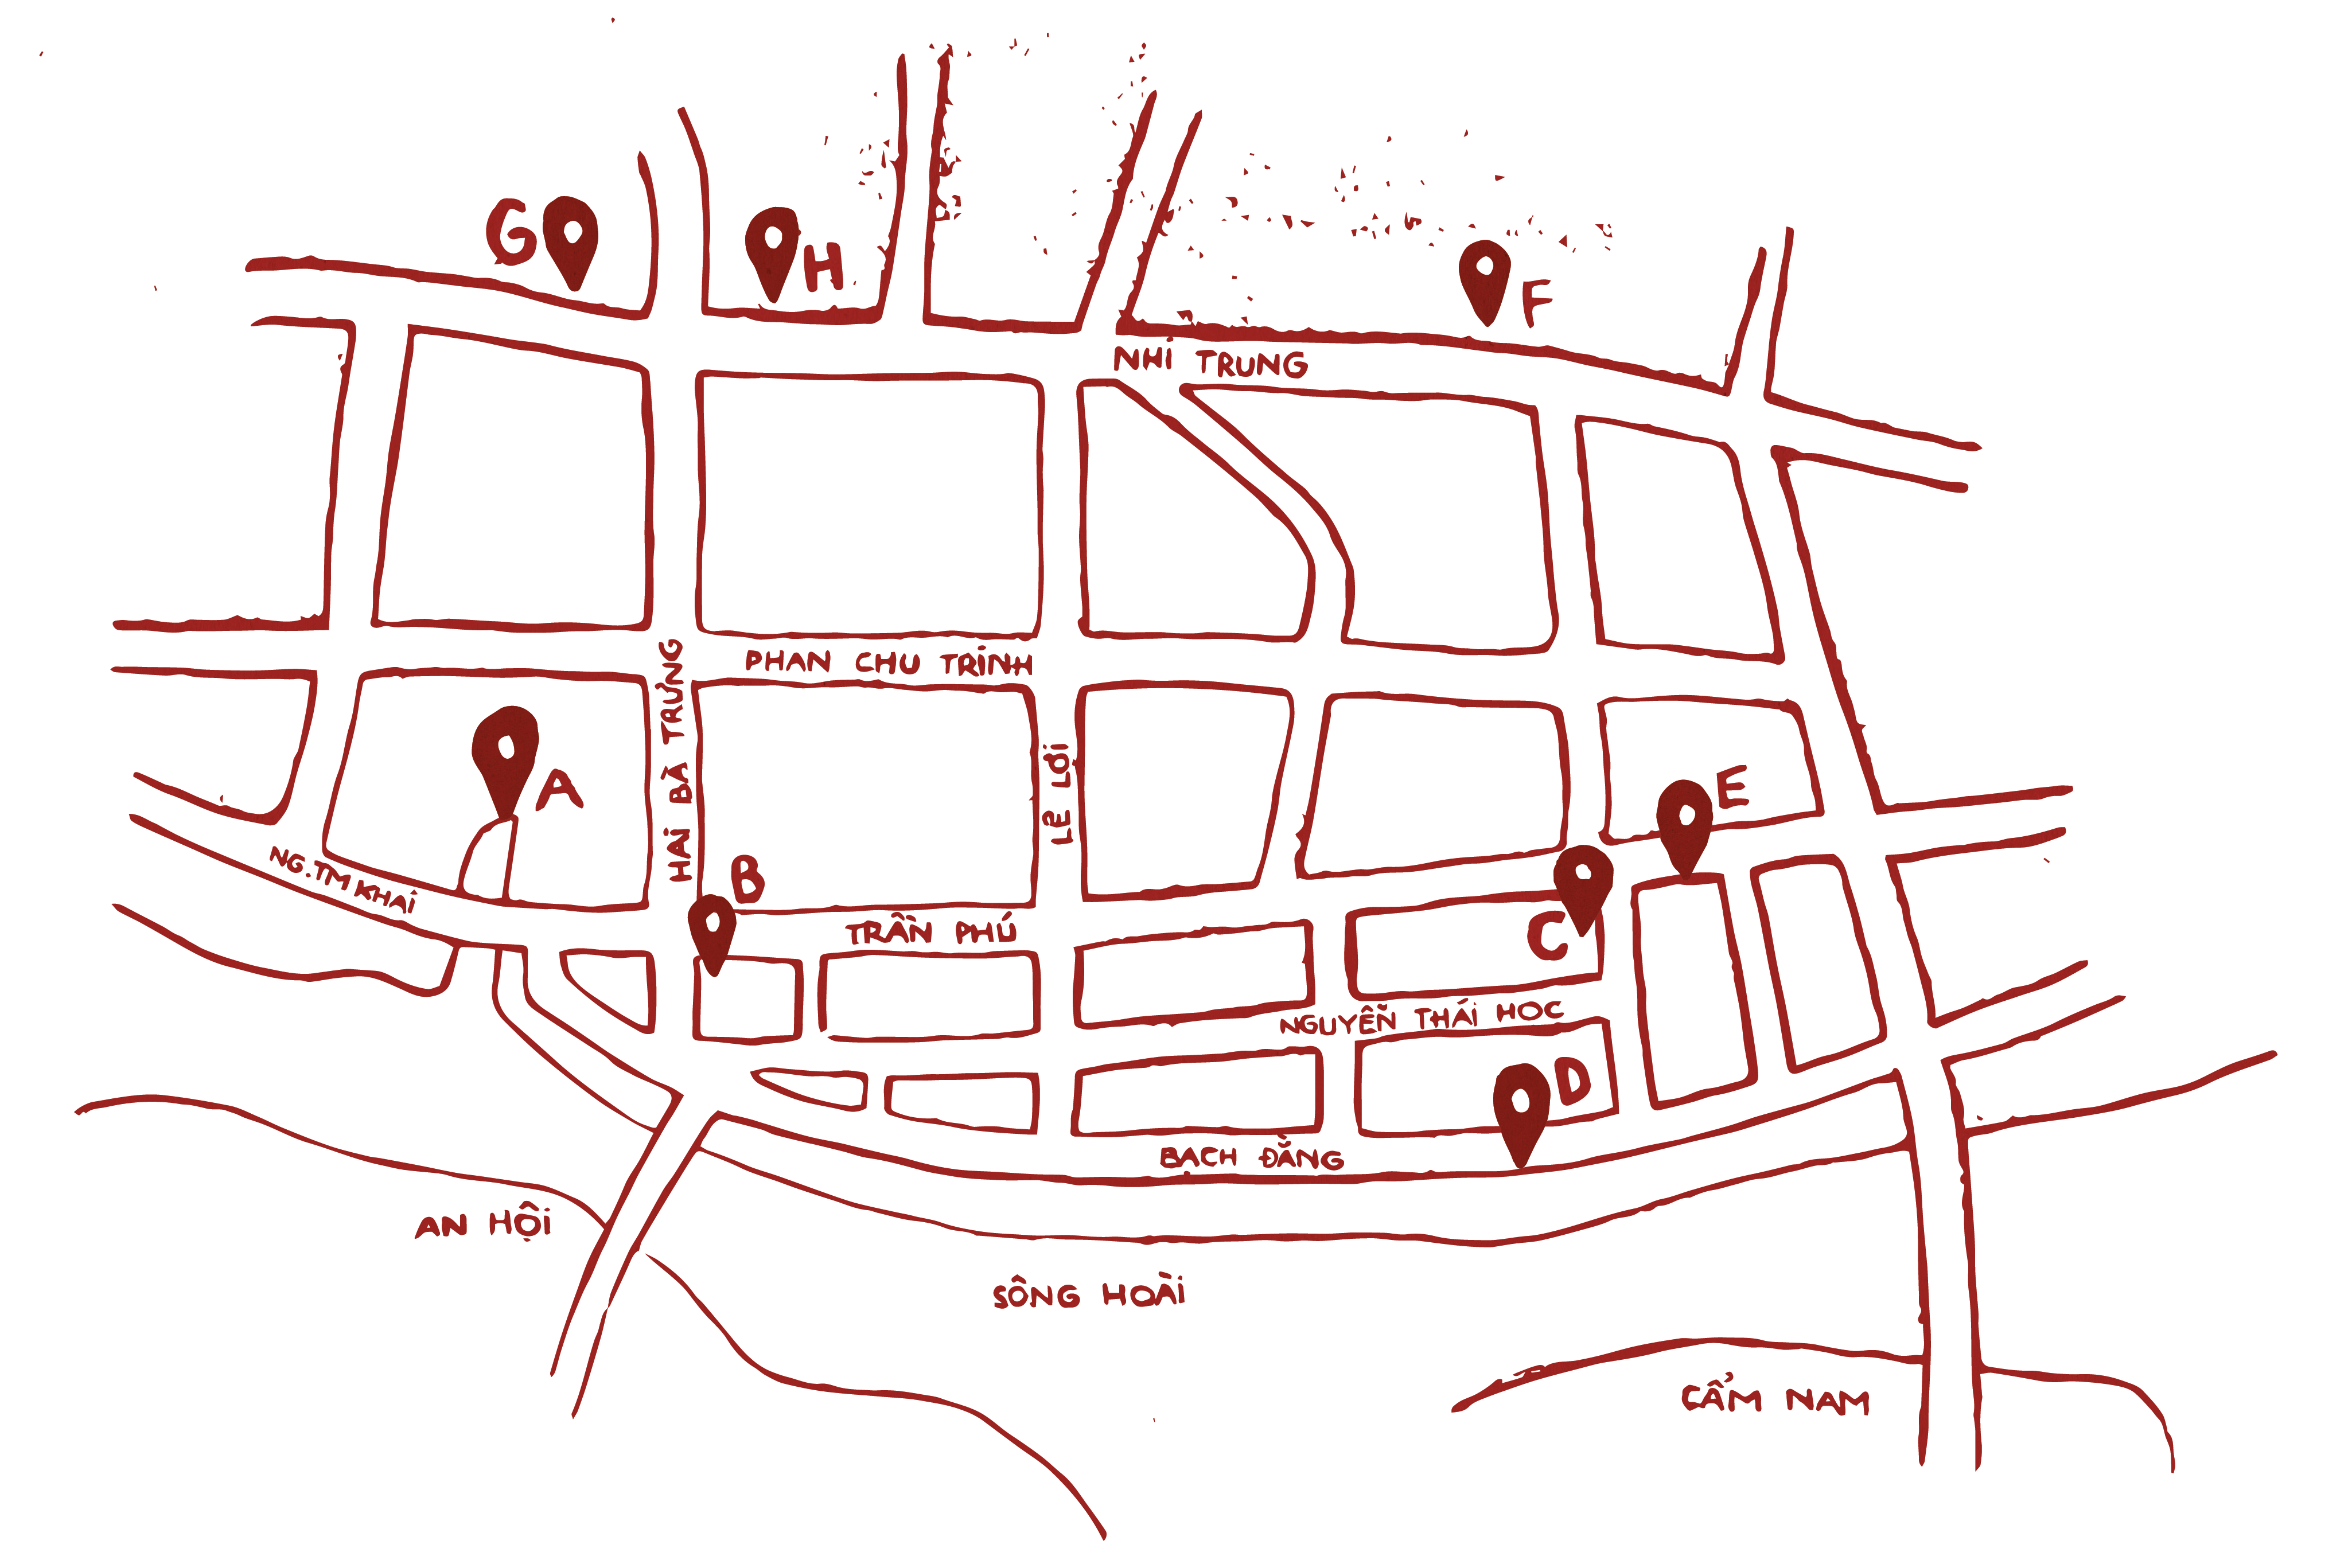 G
H
F
NHỊ TRUNG
PHAN CHU TRINH
HAI BÀ TRƯNG
LÊ LỢI
A
E
B
NG.TM KHAI
TRẦN PHÚ
C
NGUYỄN THÁI HOC
D
BẠCH ĐẰNG
AN HỘI
SÔNG HOÀI
CẨM NAM